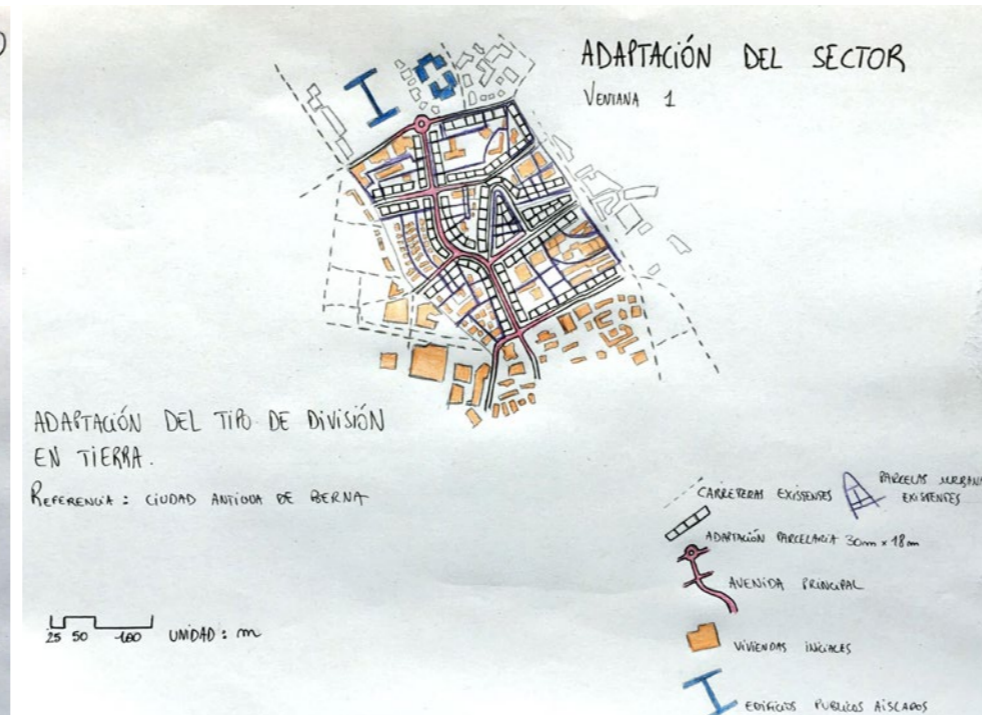 ADAPTACIÓN DEL SECTOR
VENTANA 1
ADAPTACIÓN DEL TIPO DE DIVISIÓN
EN TIERRA.
REFERENCIA : CIUDAD ANTIGUA DE BERNA
CARRETERAS EXISTENTES
PARCELAS URBANA
EXISTENTES
ADAPTACIÓN PARCELARIA 30m x 18m
AVENIDA PRINCIPAL
VIVIENDAS INICIALES
EDIFICIOS PUBLICOS AISLADOS
25 50 100 UNIDAD : m